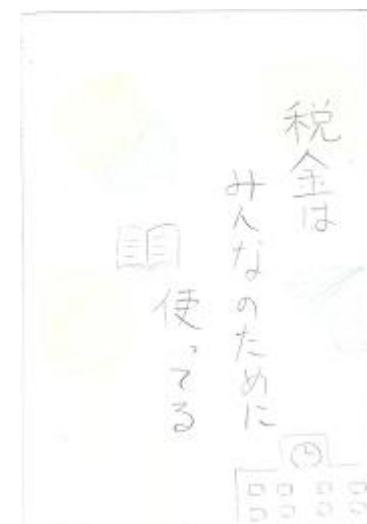 税金は
みんなのために
使ってる